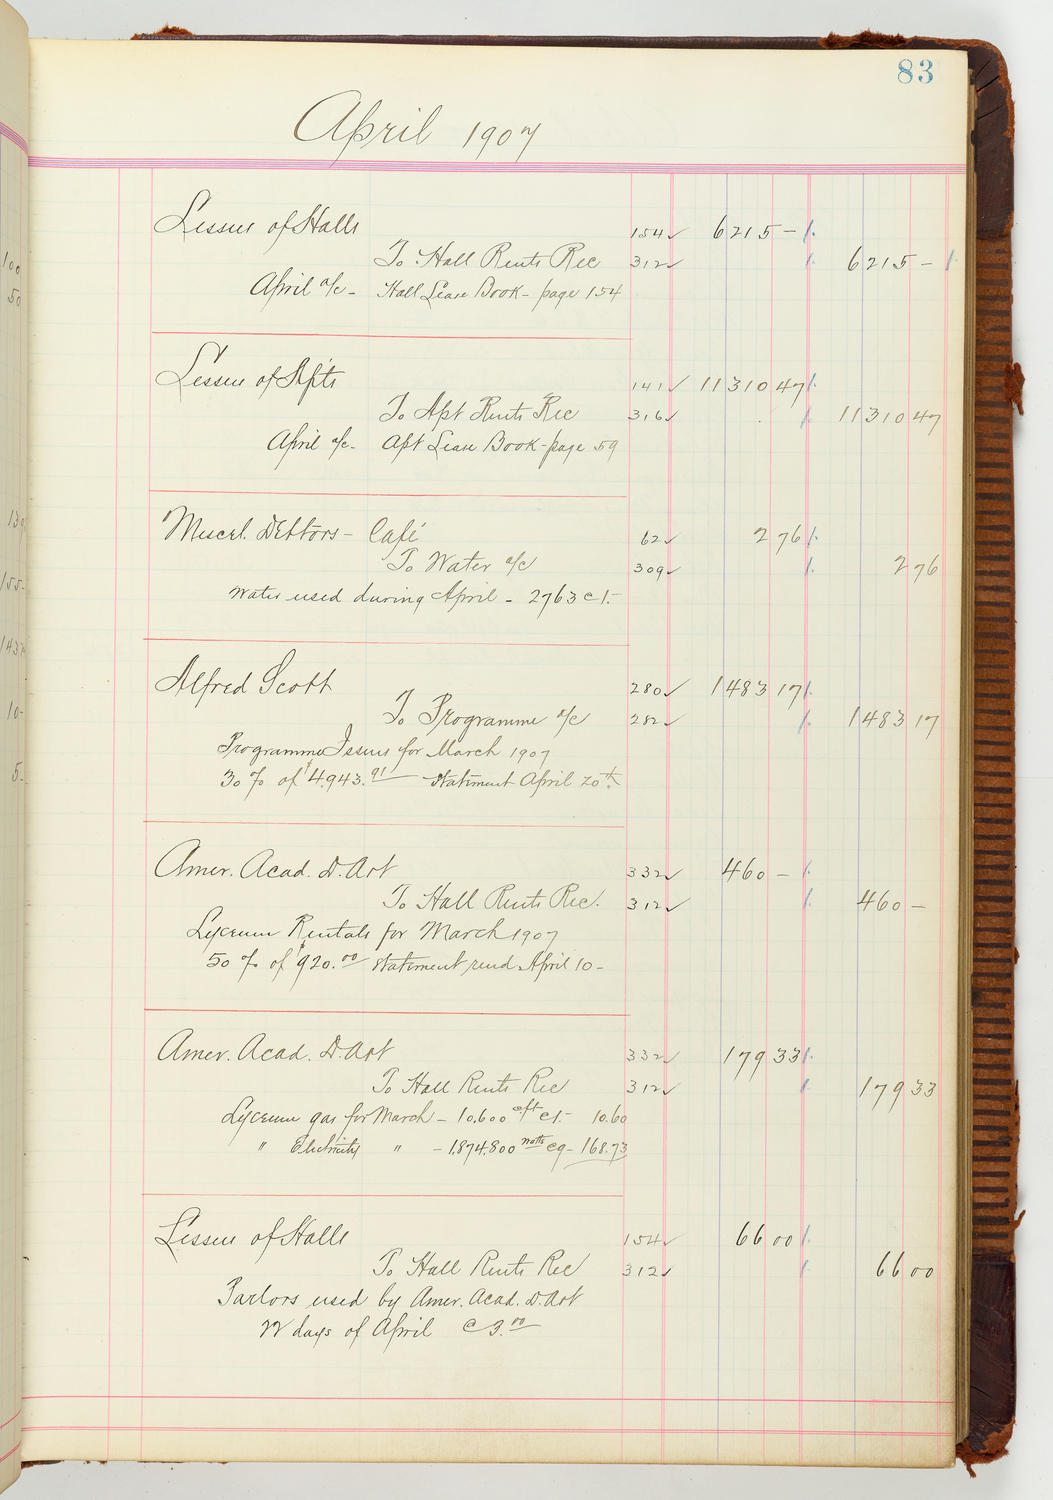 83
April 1907
Lessees of Halls 154 ✓ 6215 –
To Hall Rents Rec 312 ✓ 6215 –
April a/c – Hall Lease Book – page 154
Lessees of Apts 141 ✓ 11310 47
To Apt Rents Rec 316 ✓ 11310 47
April a/c – Apt Lease Book – page 59
Miscel. Debtors – Café 62 ✓ 2 76
To Water a/c 309 ✓ 2 76
Water used during April – 2763 c 1. –
Alfred Scott 280 ✓ 1483 17
To Programme a/c 282 ✓ 1483 17
Programme Issues for March 1907
30% of $4,943.91 – Statement April 20th
Amer. Acad. D. Art 332 ✓ 460 –
To Hall Rents Rec. 312 ✓ 460 –
Lyceum Rentals for March 1907
50% of $920.00 Statement rend April 10 –
Amer. Acad. D. Art 332 ✓ 179 33
To Hall Rents Rec 312 ✓ 179 33
Lyceum gas for March – 10,600 cft c 1. – 10.60
" Electricity " – 1,874,800 watts c 9 – 168.73
Lessees of Halls 154 ✓ 66 00
To Hall Rents Rec 312 ✓ 66 00
Parlors used by Amer. Acad. D. Art
22 days of April @ 3.00
100
50
139
155 –
10 –
5 –